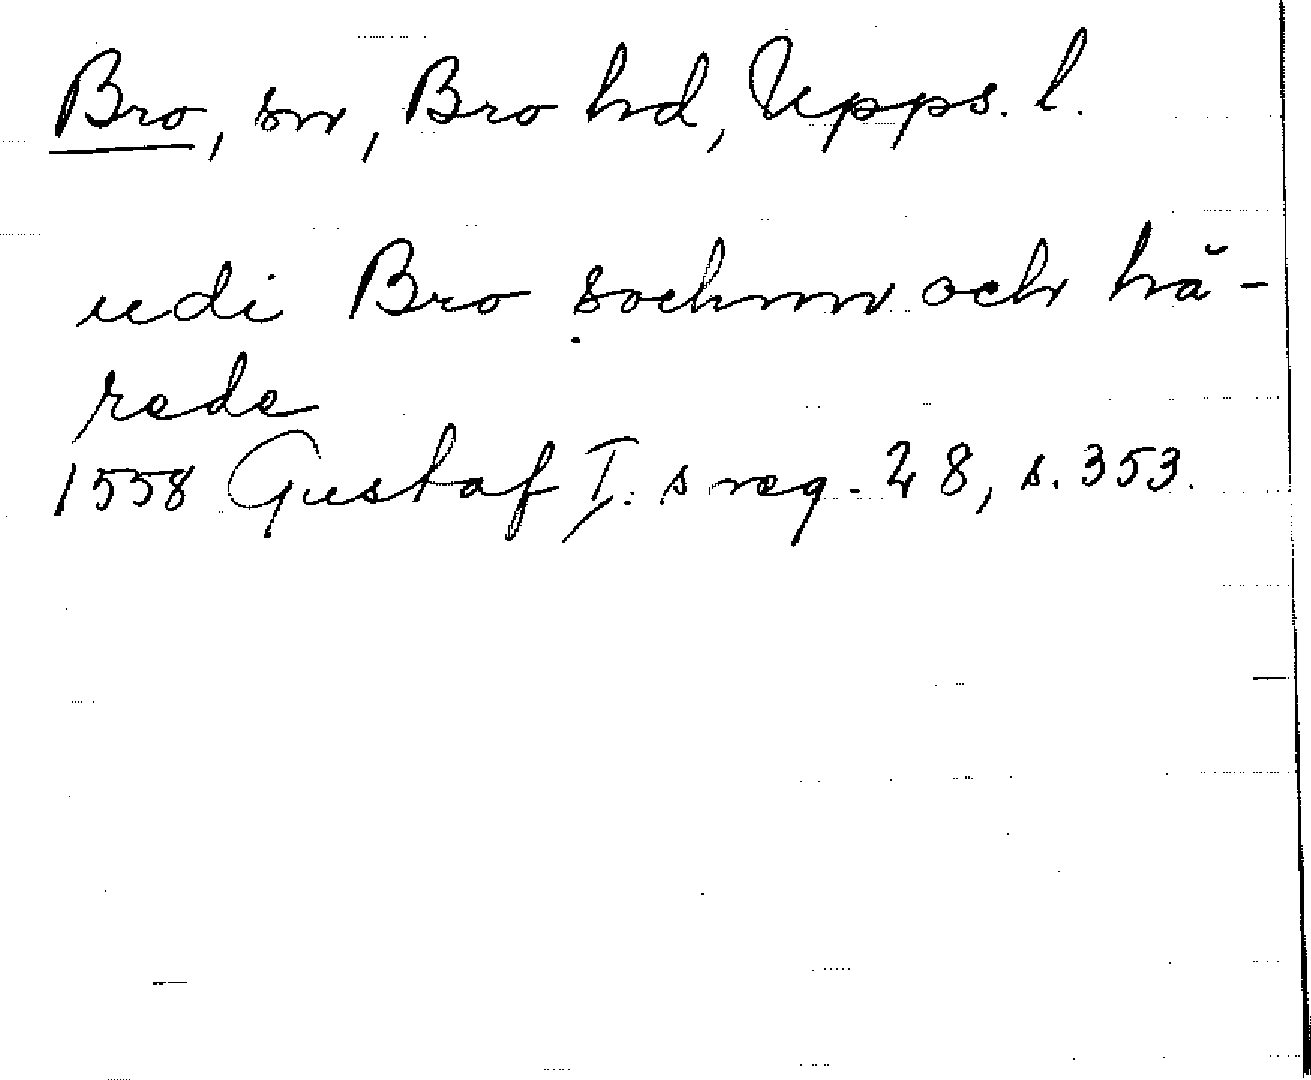 Bro, sn, Bro hd, Upps. l.
udi Bro sochnn och hä-
rede
1558 Gustaf I. s reg. 28, s. 353.